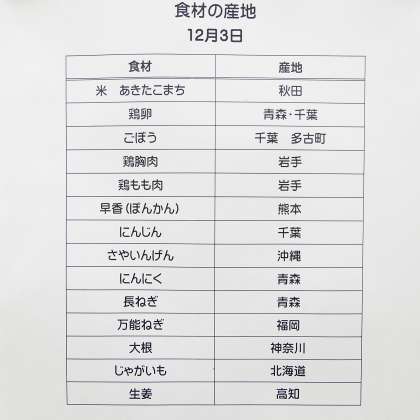 食材の産地
12月3日
食材 産地
米 あきたこまち 秋田
鶏卵 青森・千葉
ごぼう 千葉 多古町
鶏胸肉 岩手
鶏もも肉 岩手
早香(ぽんかん) 熊本
にんじん 千葉
さやいんげん 沖縄
にんにく 青森
長ねぎ 青森
万能ねぎ 福岡
大根 神奈川
じゃがいも 北海道
生姜 高知